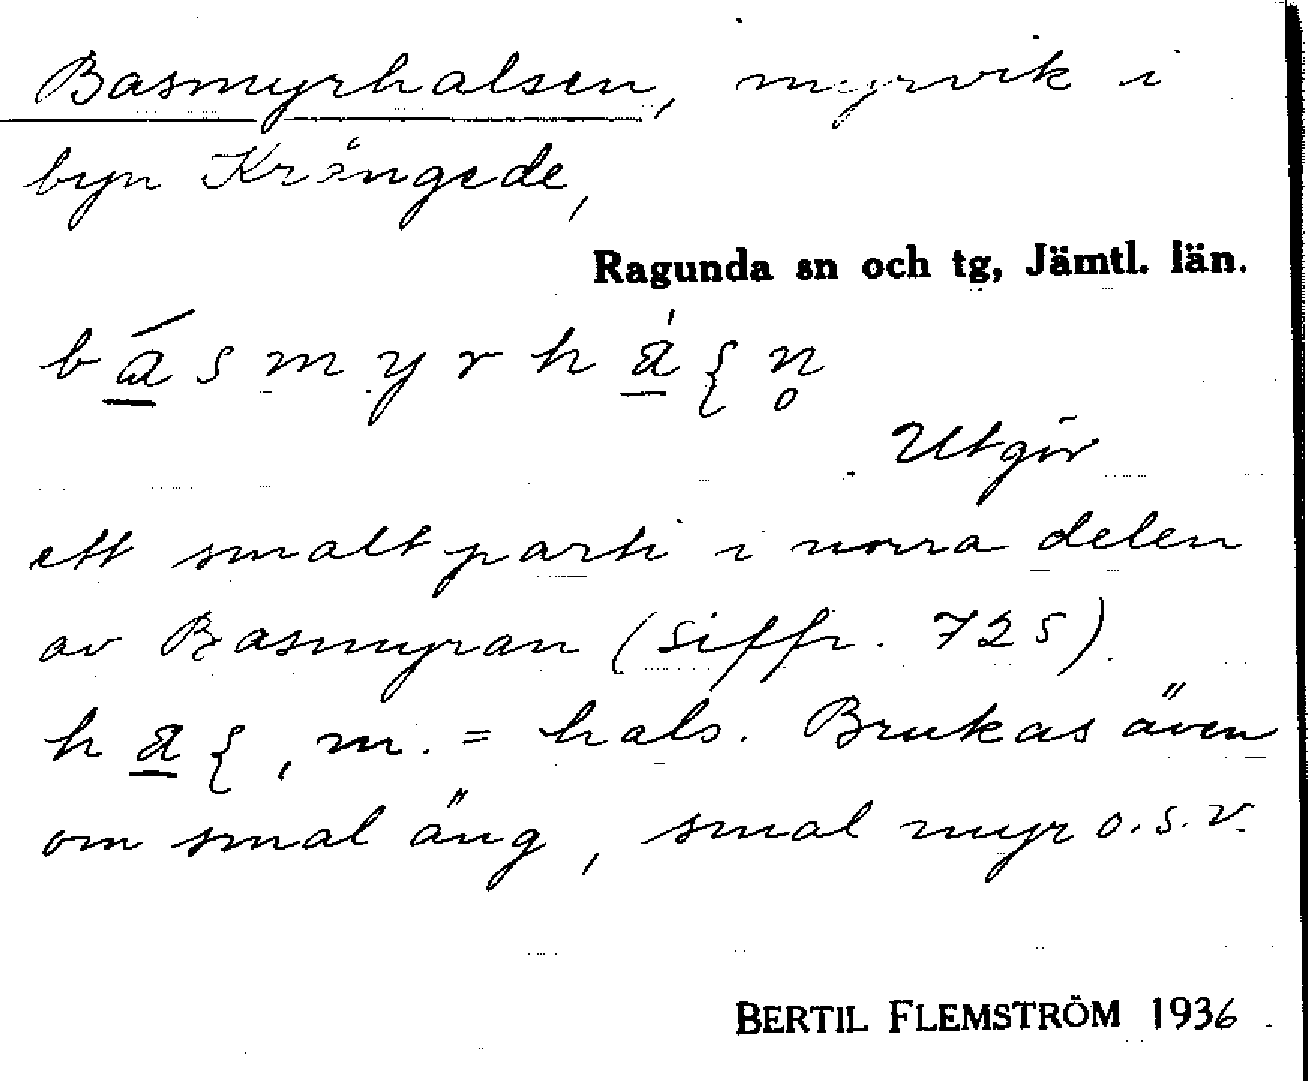 Basmyrhalsen, myrvik i
byn Krångede,
Ragunda sn och tg, Jämtl. län.
básmyrhá{n̥
Utgör
ett smalt parti i norra delen
av Basmyran (siffr. 725).
ha{, m. = hals. Brukas även
om smal äng, smal myr o.s.v.
BERTIL FLEMSTRÖM 1936